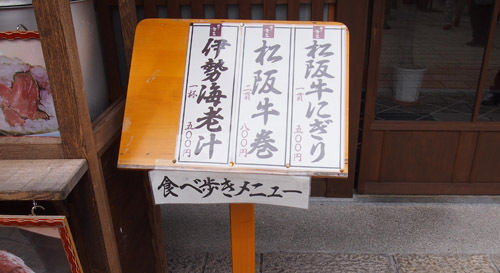 松阪牛にぎり
一貫 五〇〇円
松阪牛巻
八〇〇円
伊勢海老汁
一杯 五〇〇円
食べ歩きメニュー